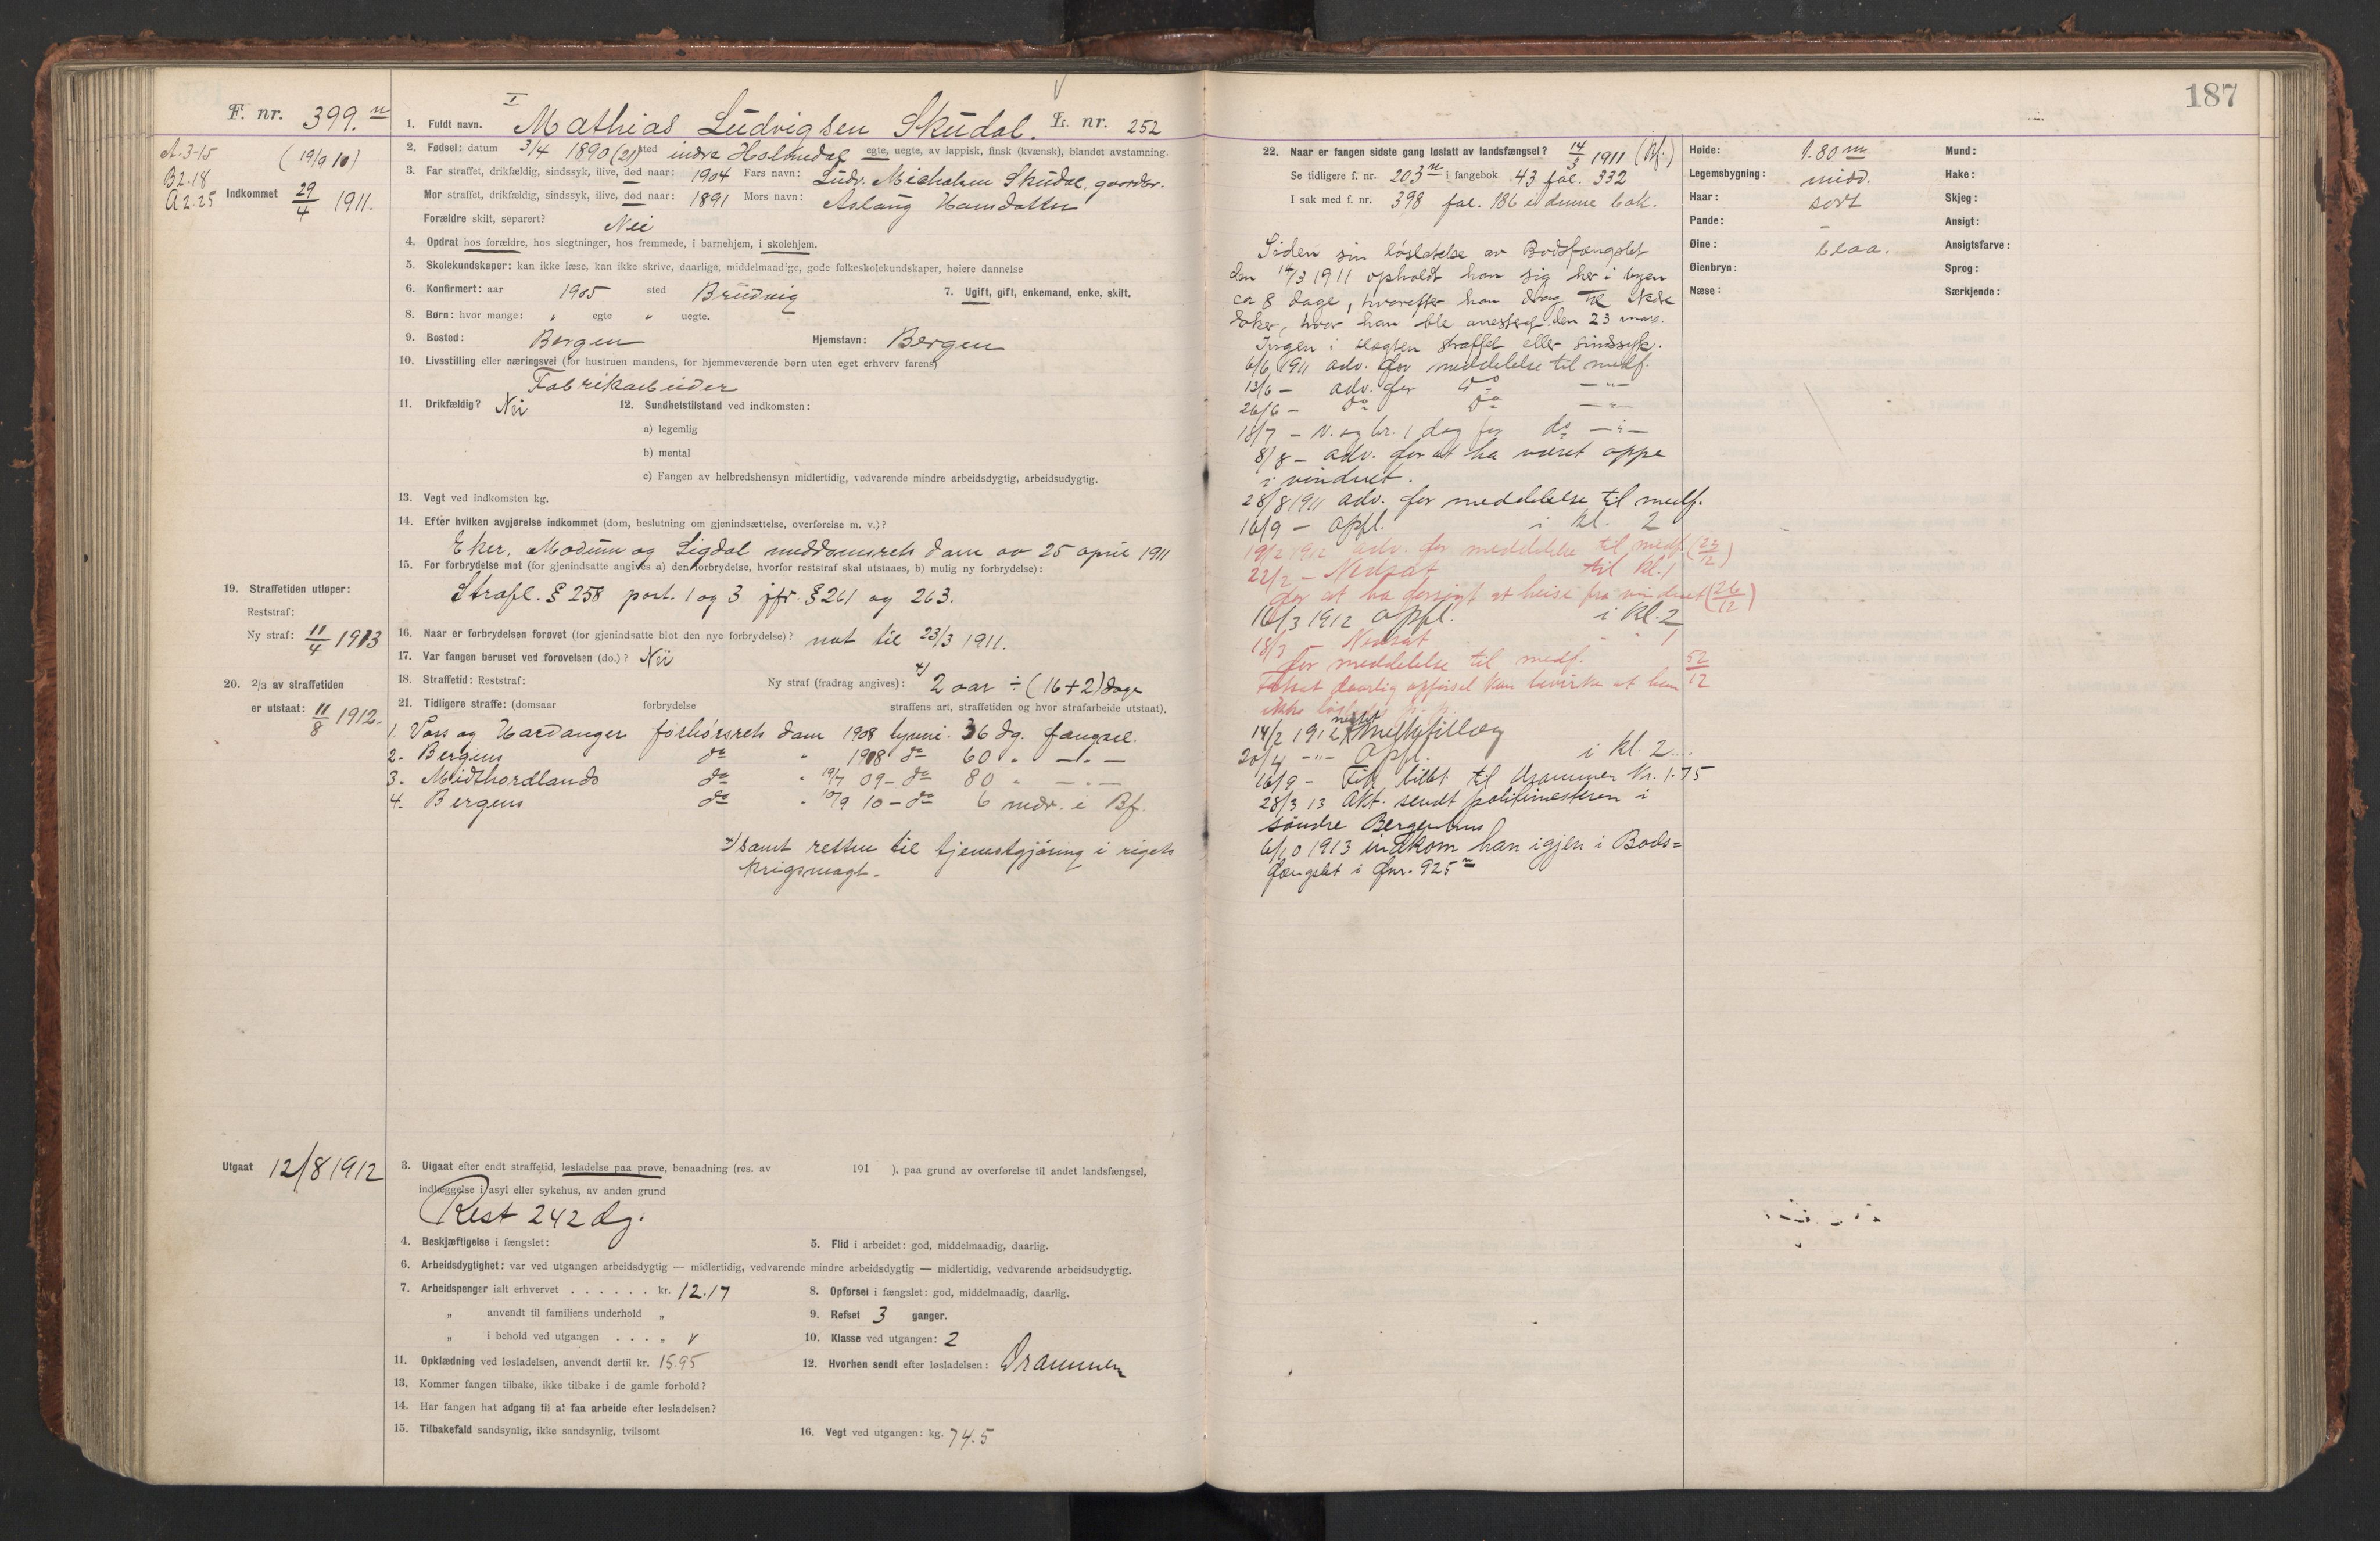 F. nr. 399.
A. 3-15 (19/9 10)
B 2.18
A 2.25 Indkommet 29/4 1911.
1. Fuldt navn. Mathias Ludvigsen Skudal. L. nr. 252
2. Fødsel: datum 3/4 1890 (21) sted indre Holmedal egte, uegte, av lappisk, finsk (kvænsk), blandet avstamning.
3. Far straffet, drikfældig, sindssyk, ilive, død naar: 1904 Fars navn: Ludv. Michalsen Skudal, gaardbr.
Mor straffet, drikfældig, sindssyk, ilive, død naar: 1891 Mors navn: Aslaug Hansdatter
Forældre skilt, separert? Nei
4. Opdrat hos forældre, hos slegtninger, hos fremmede, i barnehjem, i skolehjem.
5. Skolekundskaper: kan ikke læse, kan ikke skrive, daarlige, middelmaadige, gode folkeskolekundskaper, høiere dannelse
6. Konfirmert: aar 1905 sted Brudvig 7. Ugift, gift, enkemand, enke, skilt.
8. Børn: hvor mange: " egte " uegte.
9. Bosted: Bergen Hjemstavn: Bergen
10. Livsstilling eller næringsvei (for hustruen mandens, for hjemmeværende børn uten eget erhverv farens)
Fabrikarbeider
11. Drikfældig? Nei 12. Sundhetstilstand ved indkomsten:
a) legemlig
b) mental
c) Fangen av helbredshensyn midlertidig, vedvarende mindre arbeidsdygtig, arbeidsudygtig.
13. Vegt ved indkomsten kg.
14. Efter hvilken avgjørelse indkommet (dom, beslutning om gjenindsættelse, overførelse m. v.)?
Eker, Modum og Sigdal meddomsrets dom av 25 april 1911
15. For forbrydelse mot (for gjenindsatte angives a) den forbrydelse, hvorfor reststraf skal utstaaes, b) mulig ny forbrydelse):
Strafl. § 258 post. 1 og 3 jfr. § 261 og 263.
19. Straffetiden utløper:
Reststraf:
Ny straf: 11/4 1913
16. Naar er forbrydelsen forøvet (for gjenindsatte blot den nye forbrydelse)? nat til 23/3 1911.
17. Var fangen beruset ved forøvelsen (do.)? Nei
18. Straffetid: Reststraf: Ny straf (fradrag angives): *) 2 aar ÷ (16+2) dage
20. 2/3 av straffetiden
er utstaat: 11/8 1912.
21. Tidligere straffe: (domsaar forbrydelse straffens art, straffetiden og hvor strafarbeide utstaat).
1. Voss og Hardanger forhørsrets dom 1908 tyveri. 36 dg. fængsel.
2. Bergens do " 1908 do 60 " — " —
3. Midthordlands do " 19/7 09 - do 80 " — " —
4. Bergens do " 10/9 10 - do 6 mdr. i Bf.
*) samt retten til tjenestgjøring i rigets
krigsmagt.
Utgaat 12/8 1912
3. Utgaat efter endt straffetid, løsladelse paa prøve, benaadning (res. av 191 ), paa grund av overførelse til andet landsfængsel,
indlæggelse i asyl eller sykehus, av anden grund
Rest 242 dg.
4. Beskjæftigelse i fængslet: 5. Flid i arbeidet: god, middelmaadig, daarlig.
6. Arbeidsdygtighet: var ved utgangen arbeidsdygtig — midlertidig, vedvarende mindre arbeidsdygtig — midlertidig, vedvarende arbeidsudygtig.
7. Arbeidspenger ialt erhvervet . . . . . . kr. 12.17 8. Opførsel i fængslet: god, middelmaadig, daarlig.
" anvendt til familiens underhold " 9. Refset 3 ganger.
" i behold ved utgangen . . . " 10. Klasse ved utgangen: 2
11. Opklædning ved løsladelsen, anvendt dertil kr. 15.95 12. Hvorhen sendt efter løsladelsen: Drammen
13. Kommer fangen tilbake, ikke tilbake i de gamle forhold?
14. Har fangen hat adgang til at faa arbeide efter løsladelsen?
15. Tilbakefald sandsynlig, ikke sandsynlig, tvilsomt 16. Vegt ved utgangen: kg. 74.5
187
22. Naar er fangen sidste gang løslatt av landsfængsel? 14/3 1911 (Bf.)
Se tidligere f. nr. 203 i fangebok 43 fol. 332
I sak med f. nr. 398 fol. 186 i denne bok.
Siden sin løslatelse av Bodsfængslet
den 14/3 1911 opholdt han sig her i byen
ca 8 dage, hvorefter han drog til
Eker, hvor han ble arrestert den 23 mars.
Ingen i slegten straffet eller sindssyk.
6/6 1911 adv. for meddelelse til medf.
13/6 — adv. for do — " —
26/6 — do do — " —
18/7 — V. og br. 1 dag for do — " —
8/8 — adv. for at ha været oppe
i vinduet.
28/8 1911 adv. for meddelelse til medf.
16/9 — opfl. i kl. 2
19/2 1912 adv. for meddelelse til medf. (23/12)
22/2 — Nedsat til kl. 1
for at ha forsøgt at heise fra vinduet (26/12)
16/3 1912 opfl. i kl. 2
18/3 — Nedsat " " 1
for meddelelse til medf. 52/12
daarlig opførsel kan bevirke at han
ikke løslades p. p.
14/2 1912 negtet
20/4 — " — opfl. i kl. 2
16/9 — billet til Drammen Kr. 1.75
28/3 13 Akt. sendt politimesteren i
søndre Bergenhus
6/10 1913 indkom han igjen i Bods=
fængslet i fnr. 925
Høide: 1.80 m
Legemsbygning: midd.
Haar: sort
Pande: —
Øine: blaa.
Øienbryn:
Næse:
Mund:
Hake:
Skjeg:
Ansigt:
Ansigtsfarve:
Sprog:
Særkjende: